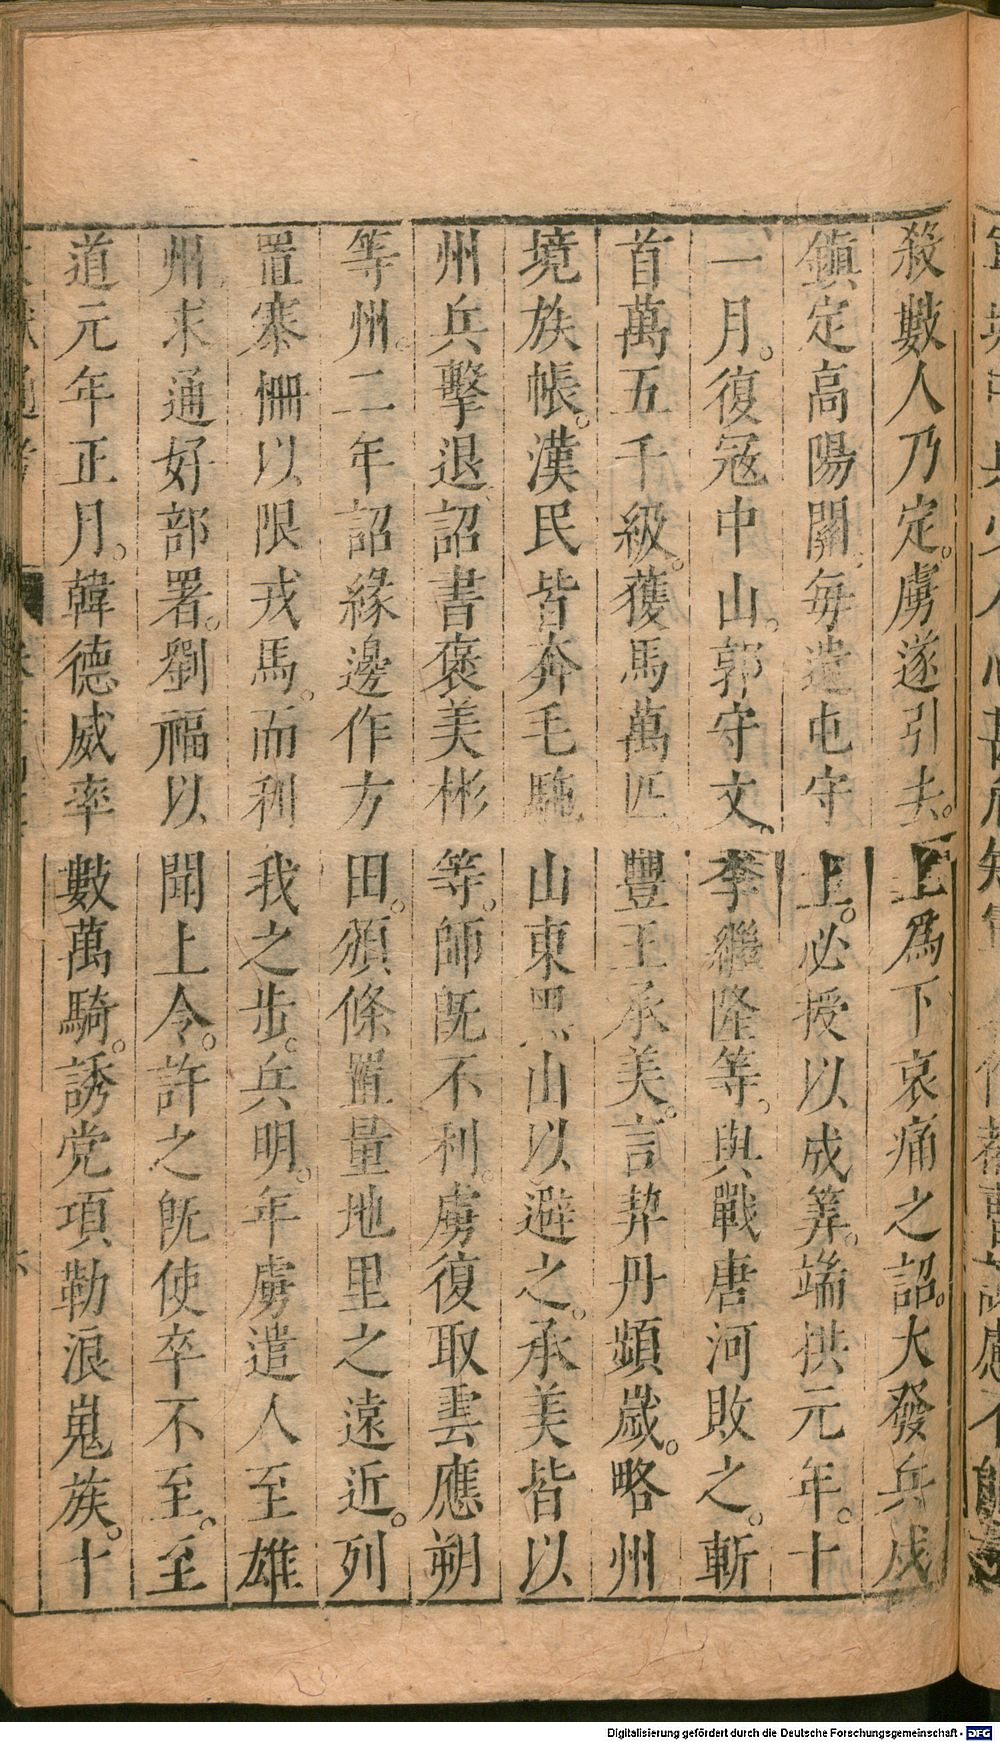 殺數人乃定。虜遂引去。上爲下哀痛之詔。大發兵戍
鎮定高陽關。每遣屯守上。必授以成筭。端拱元年。十
一月。復冦中山。郭守文。李繼隆等。與戰唐河敗之。斬
首萬五千級。獲馬萬匹。豐王承美。言契丹頻歲。略州
境族帳。漢民皆奔毛駞山東黑山以避之。承美皆以
州兵擊退詔書褒美彬等。師旣不利。虜復取雲應朔
等州。二年詔緣邊作方田。頒條置量地里之遠近。列
置寨柵以限戎馬。而利我之步。兵明。年虜遣人至雄
州求通好部署。劉福以聞上令。許之旣使卒不至。至
道元年正月。韓德威率數萬騎。誘党項勒浪嵬族。十
Digitalisierung gefördert durch die Deutsche Forschungsgemeinschaft - DFG